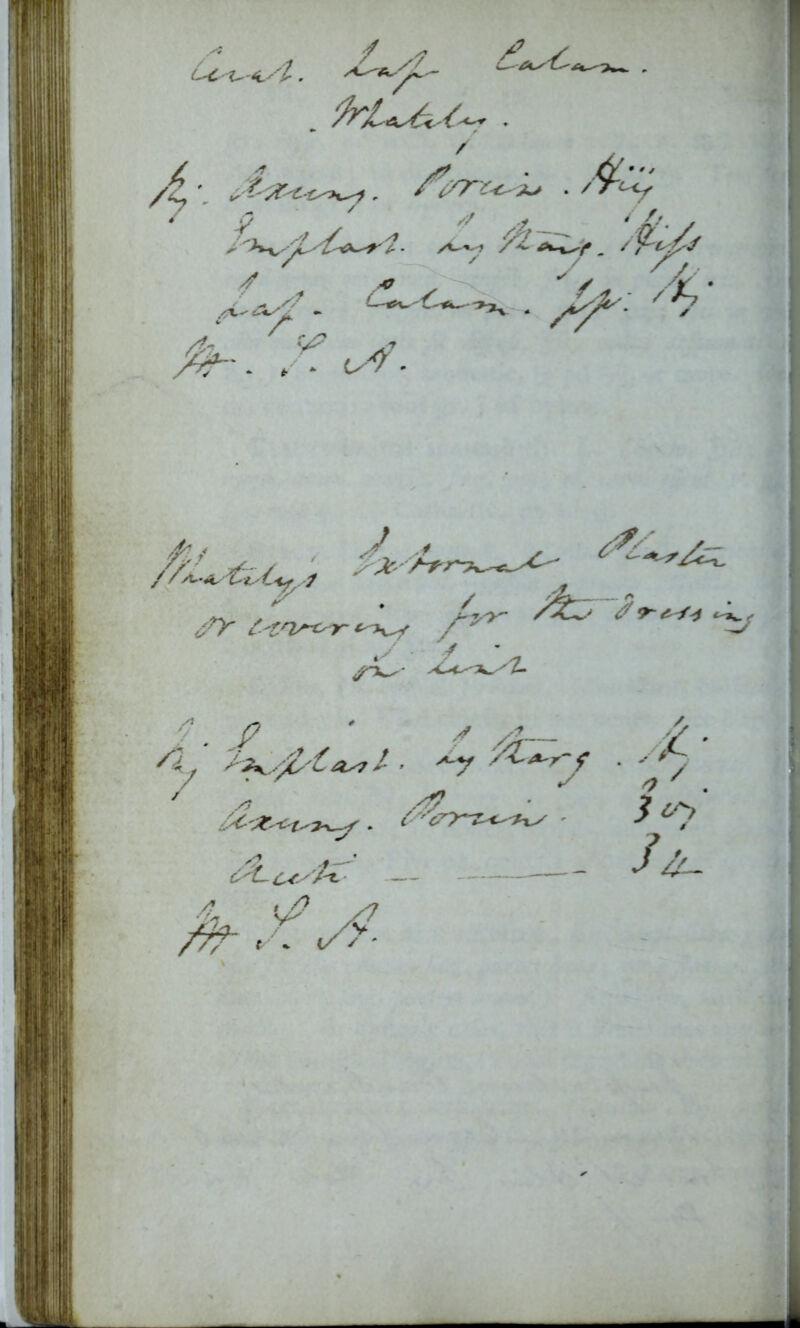 Cerat. Lap Calam.
. Whateley.
℞. Axung. Porcin. ℔iij
Emplast. Lytharg. ℔ifs
Lap. Calam. pp. ℔j
M. S. A.
Whateley's External Plaster
or covering for the Dressing
on Lint
℞ Emplast. Lytharg. ℔j
Axung. Porcin. ℥vj
Aceti — ——— ℥ii
M S. A.